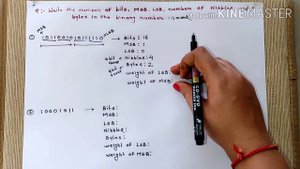 Q:- Write the number of bits, MSB, LSB, number of Nibbles and
bytes in the binary number
Made with
KINEMASTER
MSB
LSB
① 1011001011011110 → Bits: 16
MSB: 1
LSB: 0
4bit Nibbles: 4
8bit Bytes: 2
Weight of LSB:
Weight of MSB:
② 10001011 → Bits:
MSB:
LSB:
Nibbles:
Bytes:
Weight of LSB:
Weight of MSB: